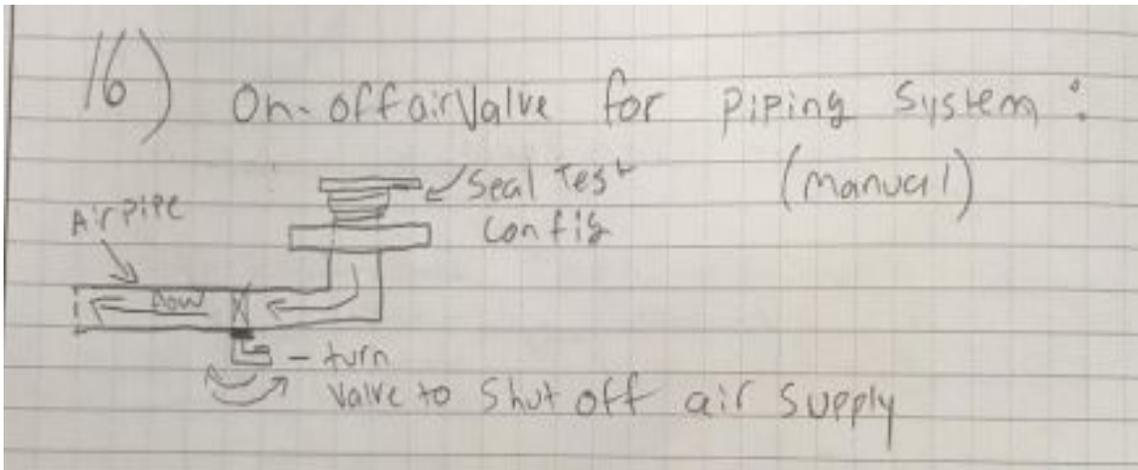 16) On-off air Valve for Piping System :
(manual)
Seal Test
Config
Air pipe
flow
- turn
Valve to Shut off air Supply